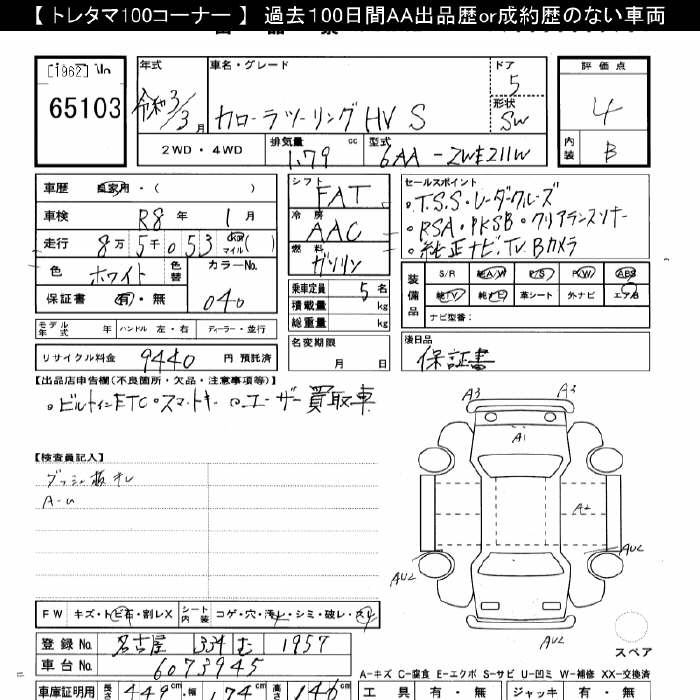 【 トレタマ100コーナー 】 過去100日間AA出品歴or成約歴のない車両
[1962]
65103
年式 車名・グレード ドア 評価点
令和3/3月 カローラツーリング HV S 5 4
形状 SW
2WD・4WD 排気量 1.79 cc 型式 6AA-ZWE211W 内装 B
車歴 自家用・( )
車検 R8年 1月
走行 8万5千053 km マイル( )
色 ホワイト 色替 カラーNo. 040
保証書 有・無
モデル年式 年 ハンドル 左・右 ディーラー・並行
リサイクル料金 9440 円 預託済
シフト FAT
冷房 AAC
燃料 ガソリン
乗車定員 5名
積載量 kg
総重量 kg
名変期限 月 日
セールスポイント
・T.S.S・レーダークルーズ
・RSA・PKSB・クリアランスソナー
・純正ナビ.TV.Bカメラ
装備品 S/R 純A/W P/S P/W ABS
純TV 純ナビ 革シート 外ナビ エアB
ナビ型番:
後日品
保証書
【出品店申告欄(不良箇所・欠品・注意事項等)】
・ビルトインETC・スマートキー ・ユーザー買取車
【検査員記入】
A-U
A3 A3
A1
A2
AU2 AU2
AU2
スペア
FW キズ・トビ石・割レX シート内装 コゲ・穴・汚レ・シミ・破レ・スレ
登録No. 名古屋 334 む 1957
車台No. 6073945
A-キズ C-腐食 E-エクボ S-サビ U-凹ミ W-補修 XX-交換済
車庫証明用 長さ 449cm 幅 174cm 高さ 146cm
工具 有・無 ジャッキ 有・無